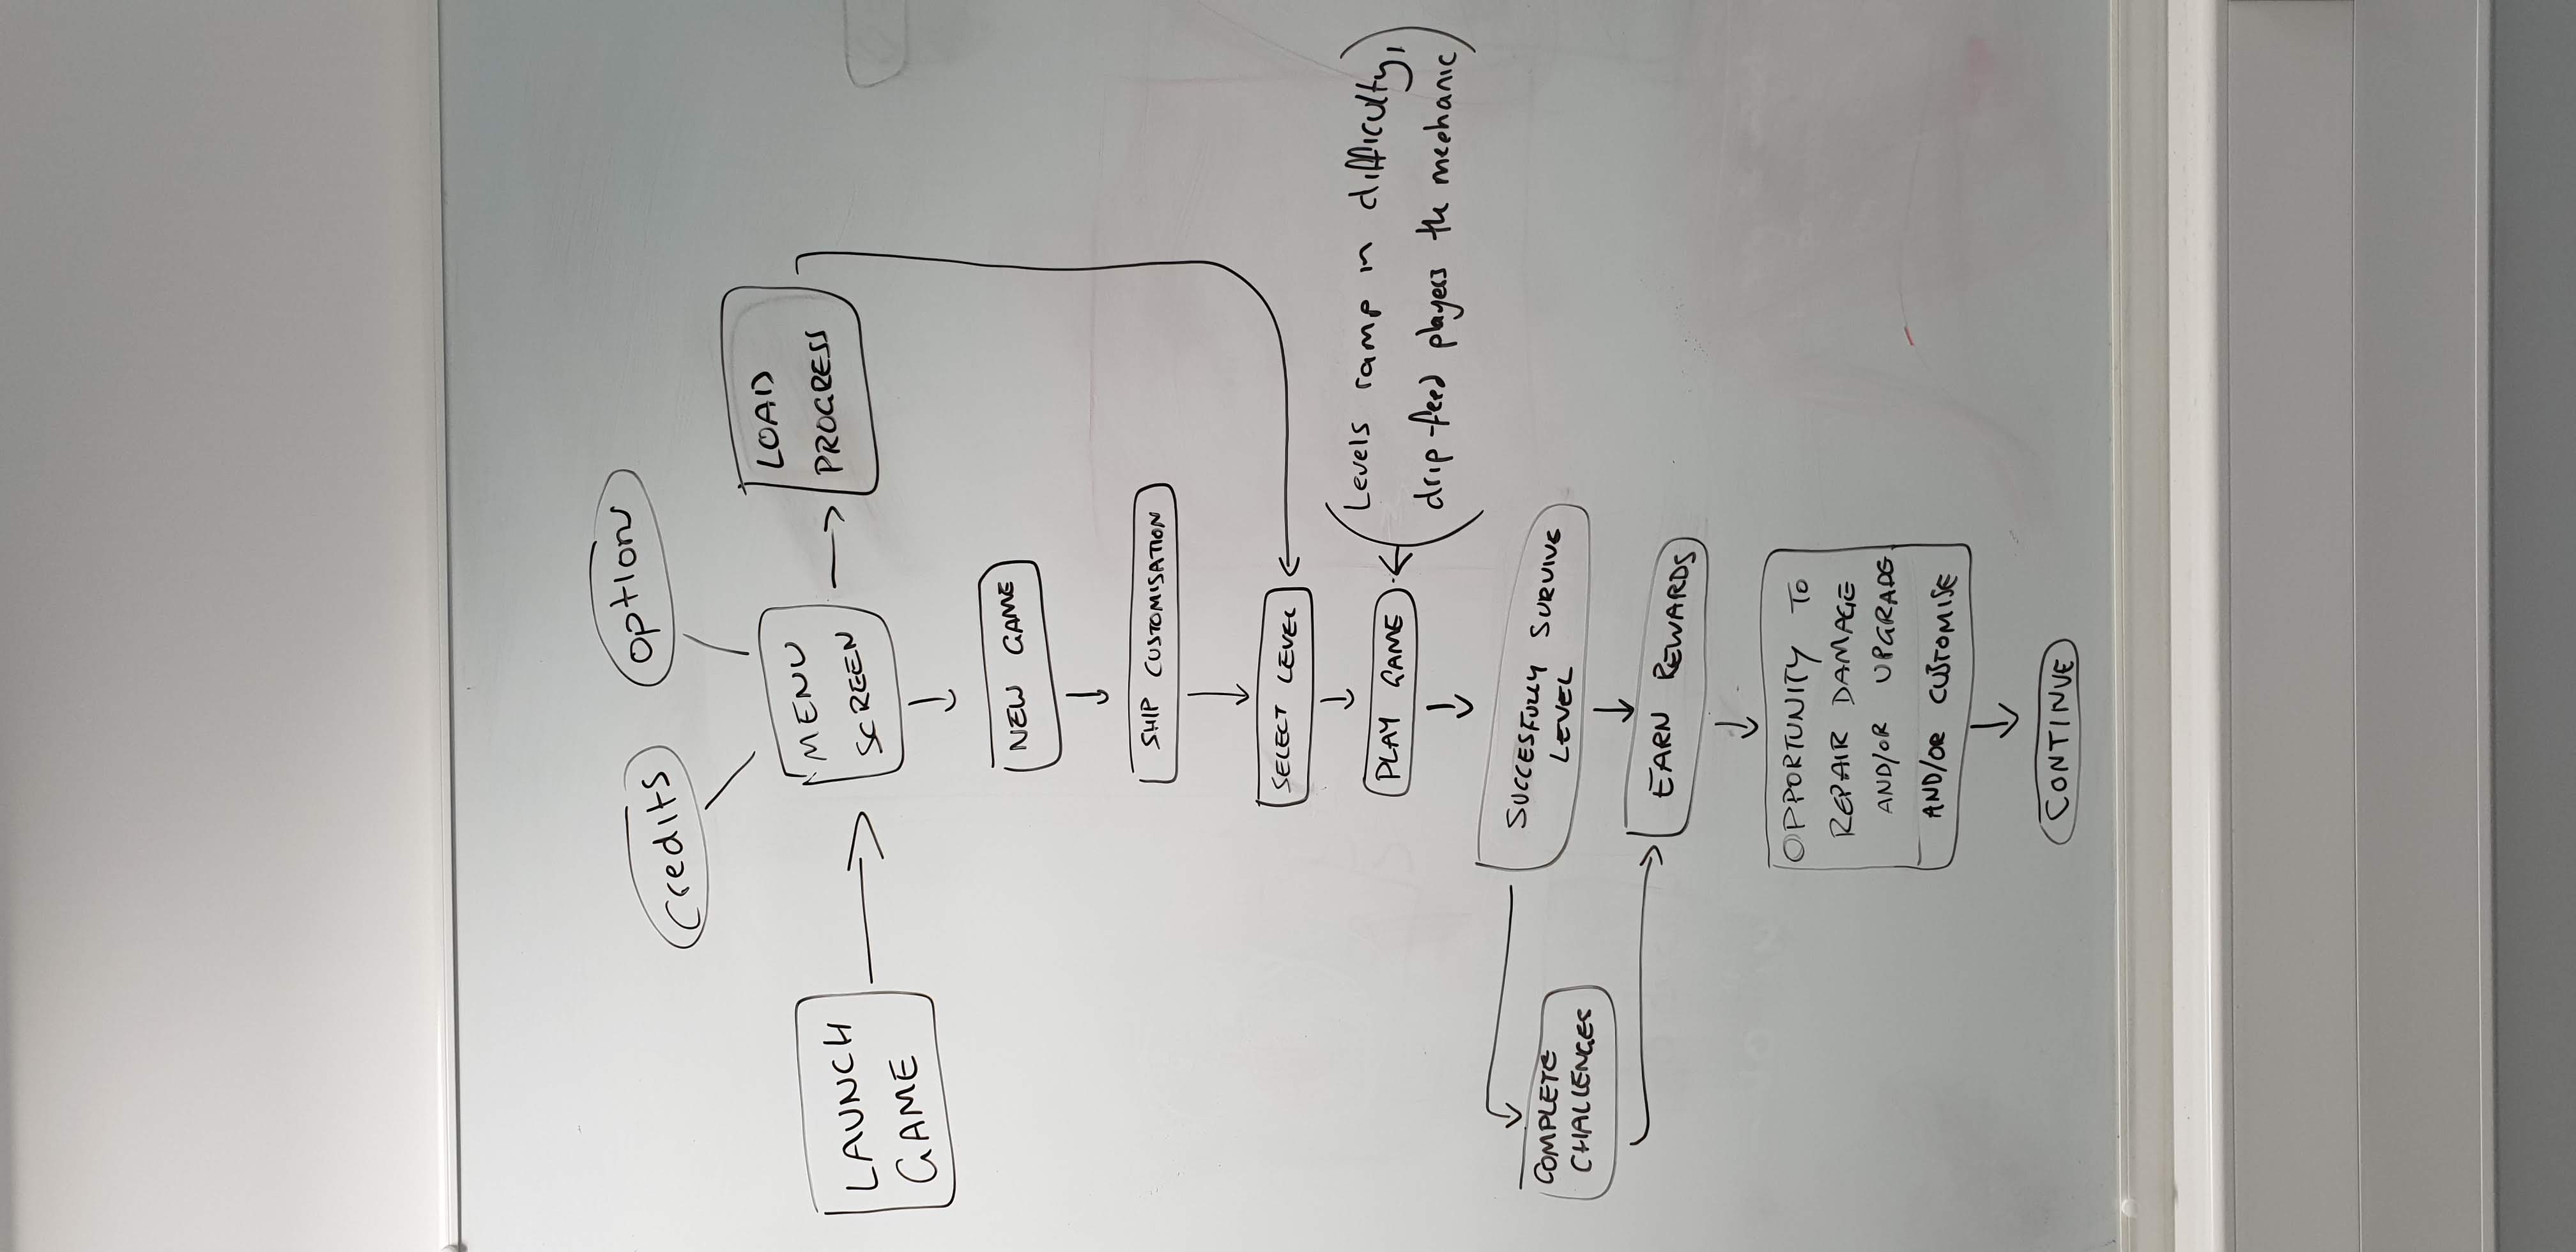 Credits
option
LAUNCH
GAME
MENU
SCREEN
LOAD
PROGRESS
NEW GAME
SHIP CUSTOMISATION
SELECT LEVEL
PLAY GAME
Levels ramp in difficulty,
drip-feed players the mechanic
SUCCESFULLY SURVIVE
LEVEL
COMPLETE
CHALLENGES
EARN REWARDS
OPPORTUNITY TO
REPAIR DAMAGE
AND/OR UPGRADE
AND/OR CUSTOMISE
CONTINUE